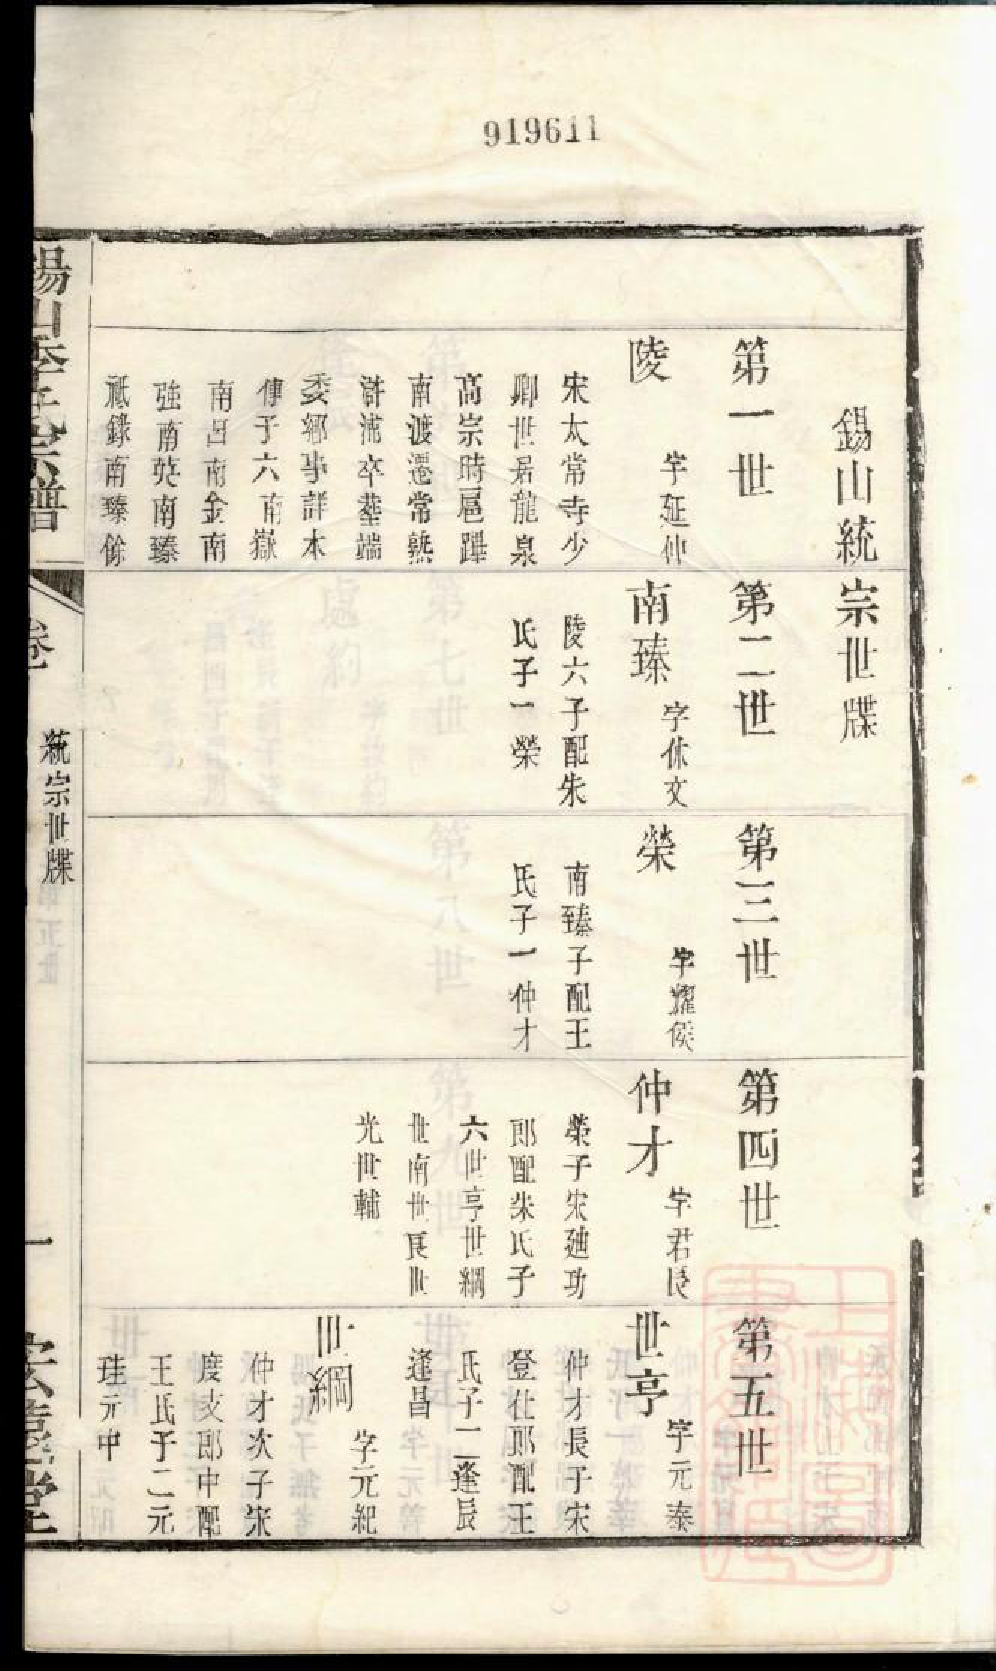 919611
錫山統宗世牒
第一世
陵
字延仲
宋太常寺少
卿世居龍泉
高宗時扈蹕
南渡遷常熟
滸浦卒塟端
委鄉事詳本
傳子六南嶽
南呂南金南
強南英南臻
祗錄南臻餘
第二世
南臻
字休文
陵六子配朱
氏子一榮
第三世
榮
字耀侯
南臻子配王
氏子一仲才
第四世
仲才
字君良
榮子宋廸功
郎配朱氏子
六世亨世綱
世南世良世
光世輔
第五世
世亨
字元泰
仲才長子宋
登仕郎配王
氏子二逢辰
逢昌
世綱
字元紀
仲才次子宋
度支郎中配
王氏子二元
珪元中
錫山李氏宗譜
卷
統宗世牒
一